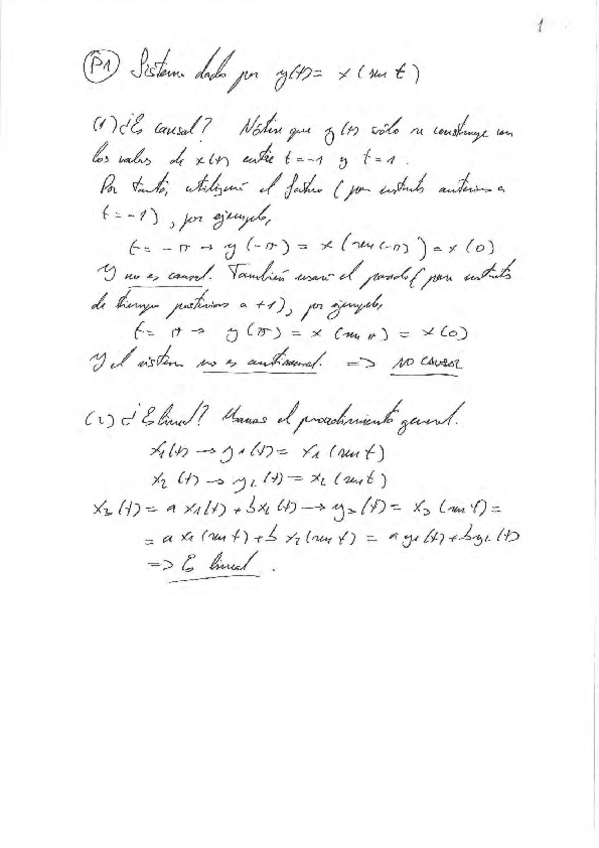 1
P1 Sistema dado por y(t) = x(sen t)
(1) ¿Es causal? Nótese que y(t) sólo se construye con
los valores de x(t) entre t=-1 y t=1.
Por tanto, utilizará el futuro (para instantes anteriores a
t=-1), por ejemplo,
t=-π → y(-π) = x(sen(-π)) = x(0)
Y no es causal. También usará el pasado (para instantes
de tiempo posteriores a +1), por ejemplo,
t=π → y(π) = x(sen π) = x(0)
Y el sistema no es anticausal. => NO CAUSAL
(2) ¿Es lineal? Usamos el procedimiento general.
x1(t) → y1(t) = x1(sen t)
x2(t) → y2(t) = x2(sen t)
x3(t) = a x1(t) + b x2(t) → y3(t) = x3(sen t) =
= a x1(sen t) + b x2(sen t) = a y1(t) + b y2(t)
=> Es lineal.